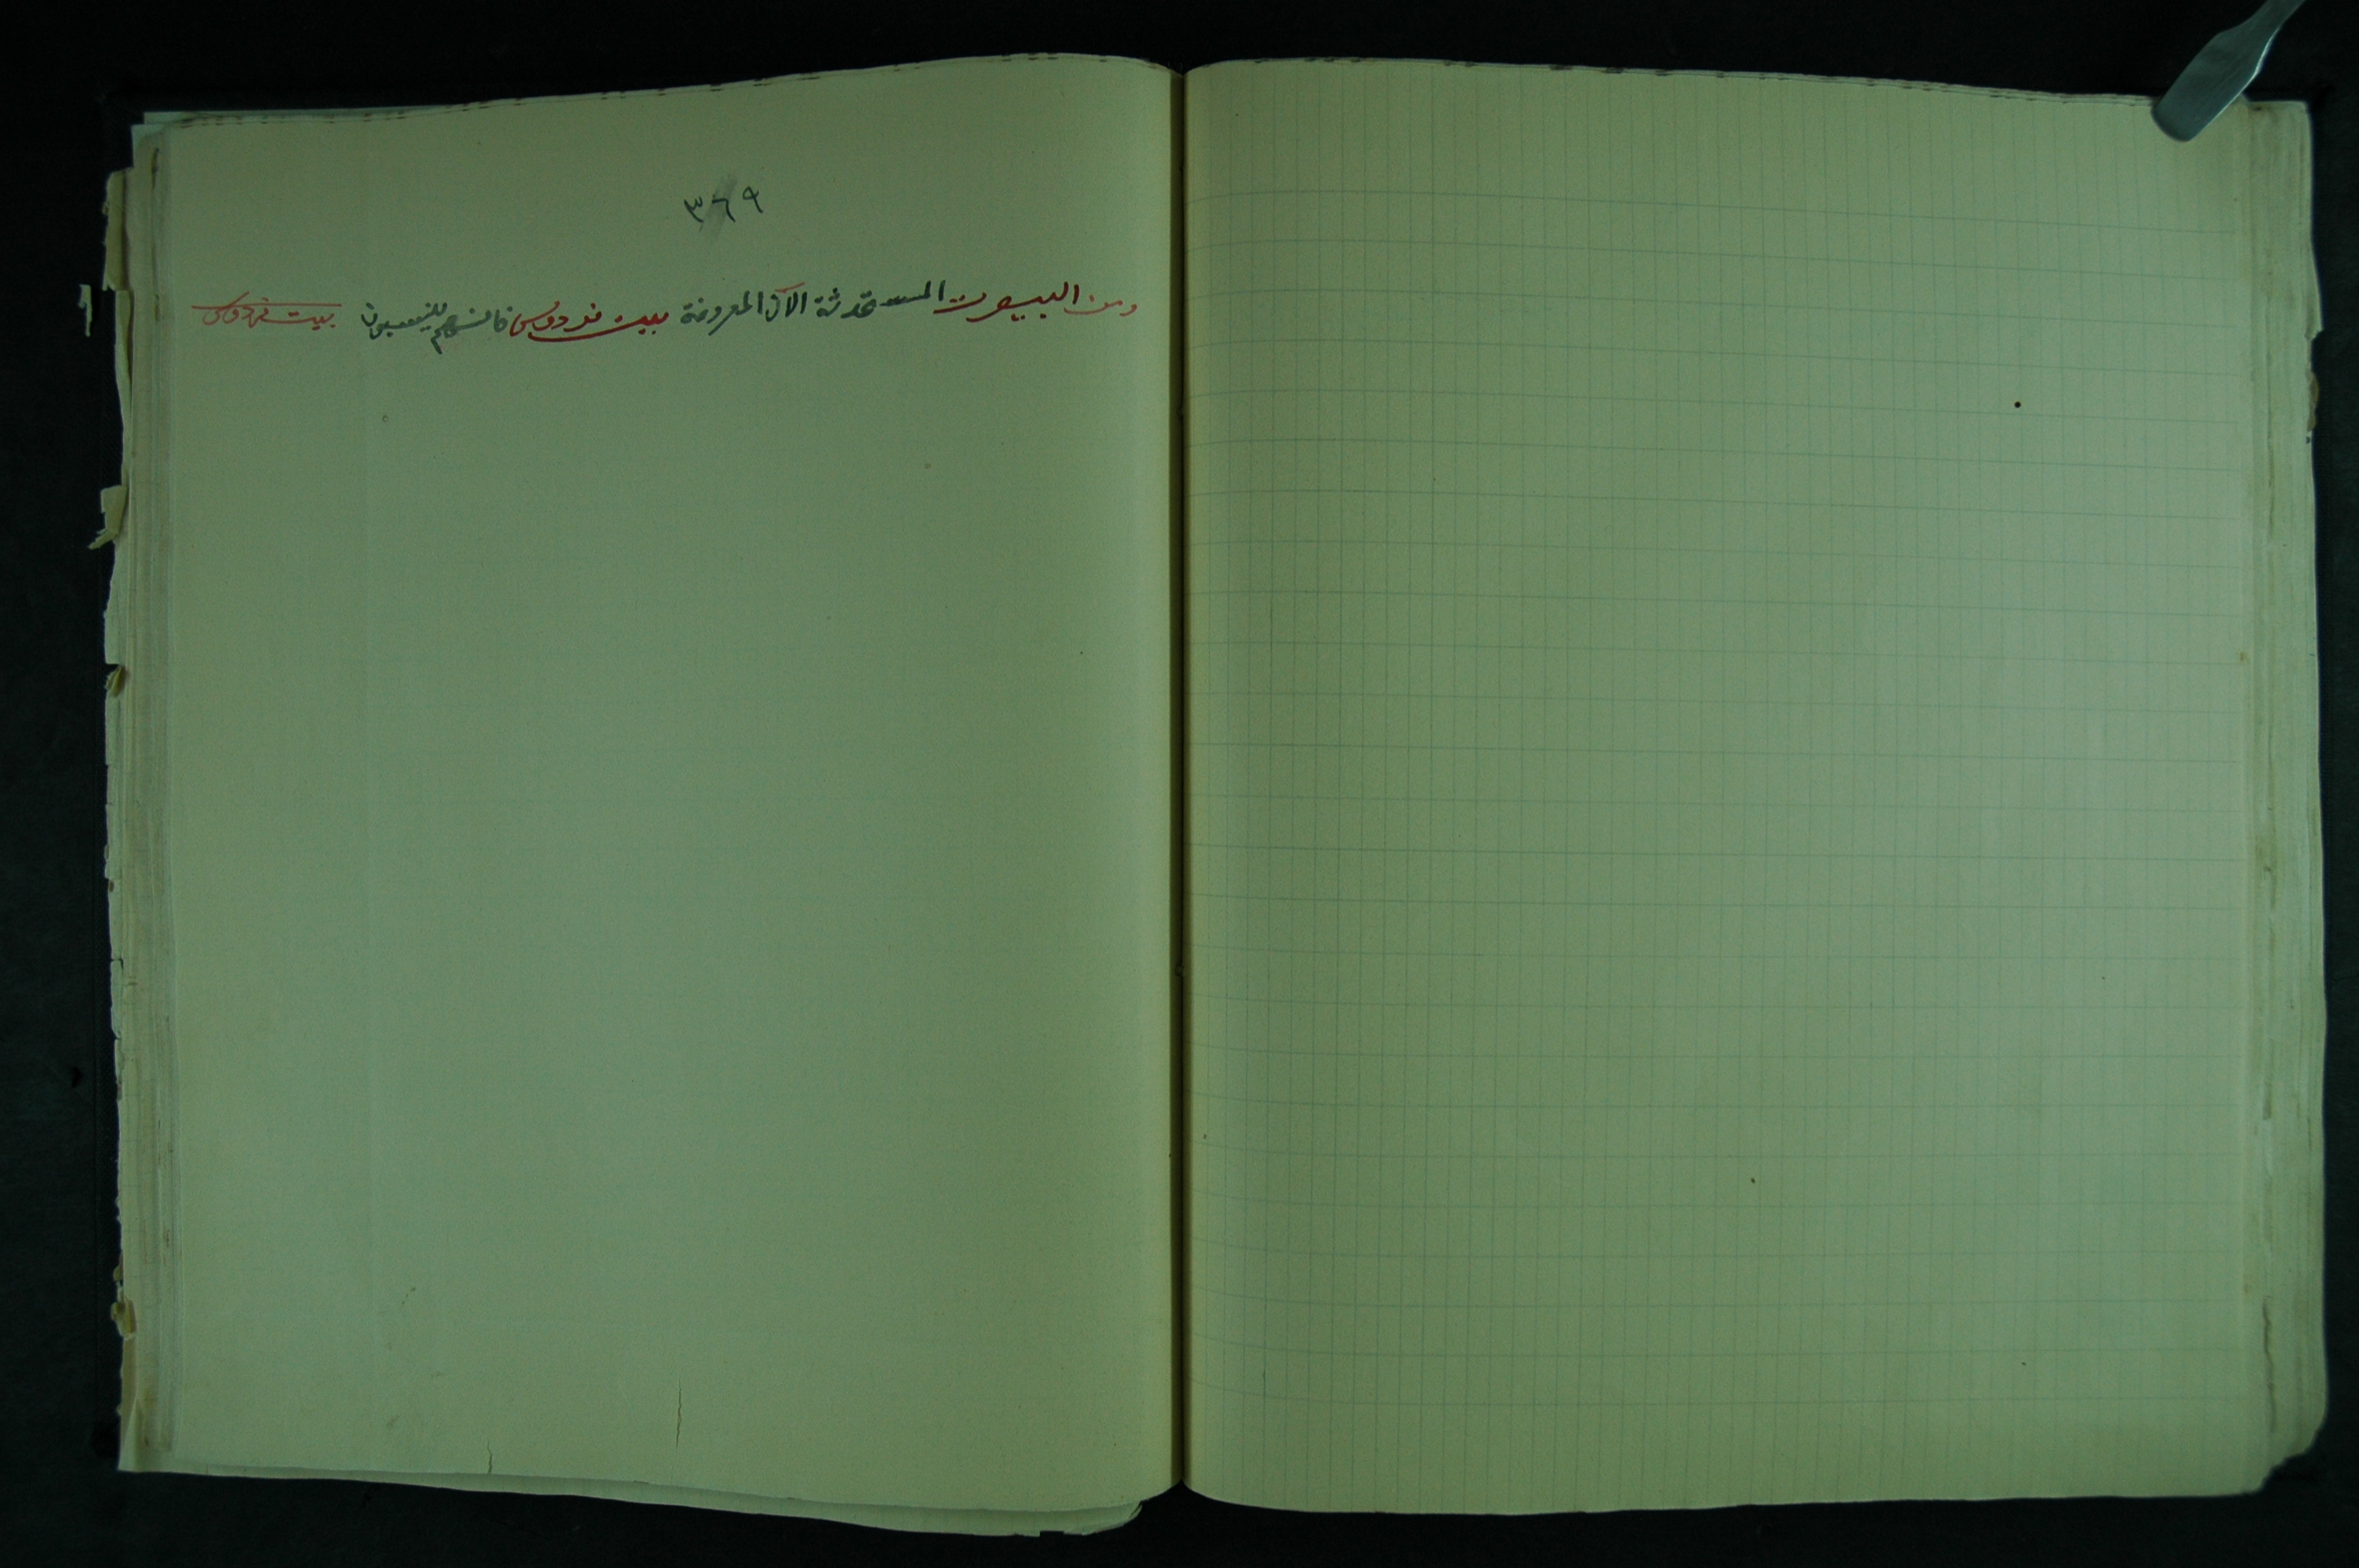 ٣٦٩
ومن البيوت المستحدثة الآن المعروفة ببيت فردوس فانهم ينسبون بيت فردوس